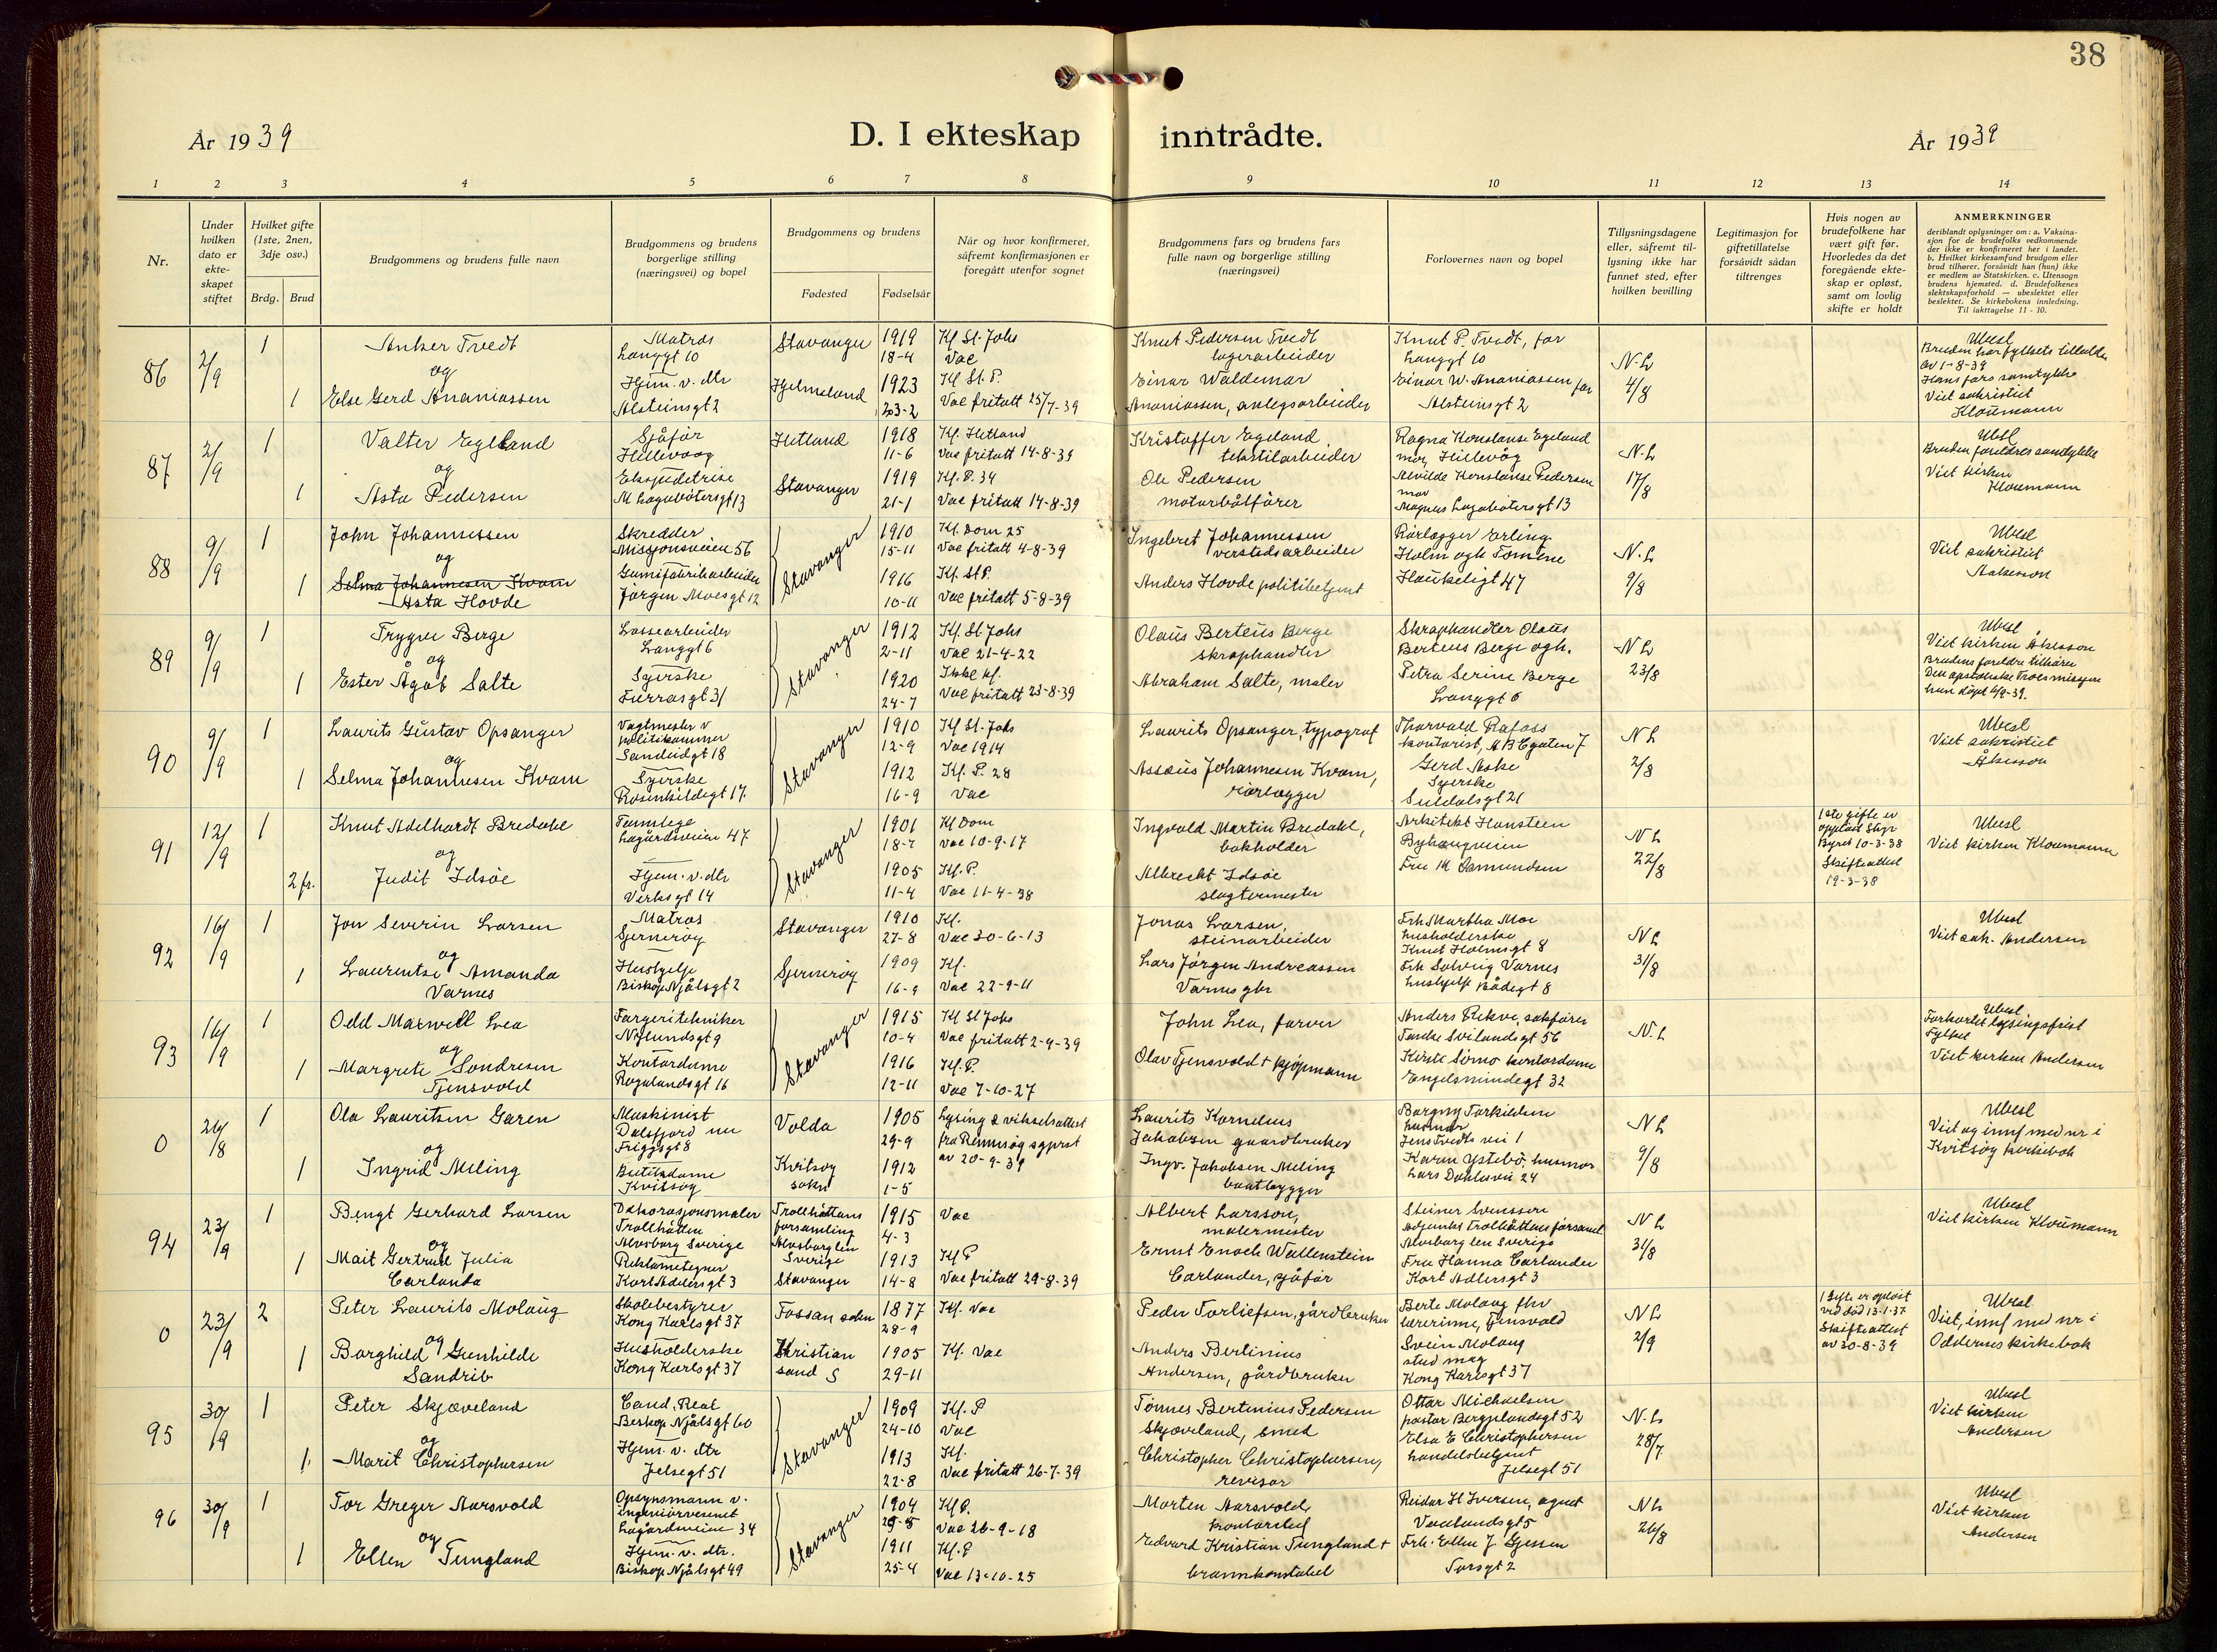 38
År 1939
D. I ekteskap inntrådte.
År 1939
1 2 3 4 5 6 7 8 9 10 11 12 13 14
Nr.
Under hvilken dato er ekteskapet stiftet
Hvilket gifte (1ste, 2nen, 3dje osv.)
Brdg. Brud
Brudgommens og brudens fulle navn
Brudgommens og brudens borgerlige stilling (næringsvei) og bopel
Brudgommens og brudens
Fødested Fødselsår
Når og hvor konfirmeret, såfremt konfirmasjonen er foregått utenfor sognet
Brudgommens fars og brudens fars fulle navn og borgerlige stilling (næringsvei)
Forlovernes navn og bopel
Tillysningsdagene eller, såfremt tillysning ikke har funnet sted, efter hvilken bevilling
Legitimasjon for giftetillatelse forsåvidt sådan tiltrenges
Hvis nogen av brudefolkene har vært gift før. Hvorledes da det foregående ekteskap er opløst, samt om lovlig skifte er holdt
ANMERKNINGER
deriblandt oplysninger om: a. Vaksinasjon for de brudefolks vedkommende der ikke er konfirmeret her i landet. b. Hvilket kirkesamfund brudgom eller brud tilhører, forsåvidt han (hun) ikke er medlem av Statskirken. c. Utensogn brudens hjemsted. d. Brudefolkenes slektskapsforhold — ubeslektet eller beslektet. Se kirkebokens innledning. Til iakttagelse 11 - 10.
86 2/9 1 Anker Tvedt Matros Langgt 10 Stavanger 1919 18-4 Kf St. Johs Vac
Knut Pedersen Tvedt lagerarbeider Knut P. Tvedt, far Langgt 10 N.L 4/8
og 1 Else Gerd Ananiassen Hjem. v. dtr Alsteinsgt 2 Hjelmeland 1923 23-2 Kf St. P. Vac fritatt 25/7-39
Einar Waldemar Ananiassen, anlegsarbeider Einar W. Ananiassen far Alsteinsgt 2
Ubesl Bruden har fylkets tillatelse av 1-8-39 Hans fars samtykke Viet sakristiet Kloumann
87 2/9 1 Valter Egeland Sjåfør Hillevaag Hetland 1918 11-6 Kf. Hetland Vac fritatt 14-8-39
Kristoffer Egeland tekstilarbeider Ragna Konstanse Egeland mor, Hillevåg N.L 17/8
og 1 Asta Pedersen Ekspeditrise M Lagabøtersgt 13 Stavanger 1919 21-1 Kf. P. 34 Vac fritatt 14-8-39
Ole Pedersen motorbåtfører Alvilde Konstanse Pedersen mor Magnus Lagabøtersgt 13
Ubesl Bruden foreldres samtykke Viet kirken Kloumann
88 9/9 1 John Johannessen Skredder Misjonsveien 56 Stavanger 1910 15-11 Kf. Dom 25 Vac fritatt 4-8-39
Ingebret Johannessen verstedsarbeider Rørlegger Erling Holm ogh Tomine Haukeligt 47 N.L 9/8
og 1 Selma Johannesen Kvam Asta Hovde Gumifabrikarbeider Jørgen Moesgt 12 1916 10-11 Kf. St P. Vac fritatt 5-8-39
Anders Hovde politibetjent
Ubesl Viet sakristiet Aakesson
89 9/9 1 Trygve Berge Lossearbeider Langgt 6 Stavanger 1912 2-11 Kf. St Johs Vac 21-4-22
Olaus Berteus Berge skraphandler Skraphandler Olaus Berteus Berge ogh. N L 23/8
og 1 Ester Ågot Salte Syerske Furrasgt 31 1920 24-7 Ikke kf. Vac fritatt 23-8-39
Abraham Salte, maler Petra Serine Berge Langgt 6
Ubesl Viet kirken Åkesson Brudens foreldre tilhører Den apostoliske Troesmisjon
90 9/9 1 Laurits Gustav Opsanger Vagtmester v politikammer Sandeidgt 18 Stavanger 1910 12-9 Kf St. Johs Vac 1914
Laurits Opsanger, typograf Thorvald Rafoss kontorist, A B Cgaten 7 N L 2/8
og 1 Selma Johannesen Kvam Syerske Rosenkildegt 17. 1912 16-9 Kf. P. 28 Vac
Assæus Johannesen Kvam, rørlegger Gerd Aske Syerske Suldalsgt 21
Ubesl Viet sakristiet Åkesson
91 12/9 1 Knut Adelhardt Bredahl Tannlege Lagårdsveien 47 Stavanger 1901 18-7 Kf Dom Vac 10-9-17
Ingvald Martin Bredahl, bokholder Arkitekt Hansteen Byhaugveien N L 22/8
og 2 fr. Judit Idsøe Hjem. v. dtr Verksgt 14 1905 11-4 Kf. P. Vac 11-4-38
Albrecht Idsøe slagtermester Fru M Asmundsen
1ste gifte er oppløst Byret 10-3-38 Skifteattest 19-3-38
Ubesl Viet kirken Kloumann
92 16/9 1 Jon Severin Larsen Matros Sjernerøy Stavanger 1910 27-8 Kf. Vac 30-6-13
Jonas Larsen, steinarbeider Frk Martha Moe husholderske Knut Holmsgt 8 N L 31/8
og 1 Laurentse Amanda Varnes Hushjelp Biskop Njålsgt 2 Sjernerøy 1909 16-9 Kf. Vac 22-9-11
Lars Jørgen Andreassen Varnes gbr Frk Solveig Varnes hushjelp Bødegt 8
Ubesl Viet sak. Andersen
93 16/9 1 Odd Maxwell Lea Fargeritekniker Nylundsgt 9 Stavanger 1915 10-4 Kf St Johs Vac fritatt 2-9-39
John Lea, farver Anders Rekve, sakfører Tanke Svilandsgt 56 N.L
og 1 Margrete Sondresen Tjensvold Kontordame Rogalandsgt 16 1916 12-11 Kf. P. Vac 7-10-27
Olav Tjensvold + kjøpmann Kirste Sømo kontordame Engelsmindegt 32
Ubesl Forkortet lysingsfrist Fylket Viet kirken Andersen
0 26/8 1 Ola Lauritsen Garen Maskinist Dalsfjord nu Friggsgt 8 Volda 1905 29-9 Lysing & vikselsattest fra Rennesøy sgprst av 20-9-39
Laurits Kornelius Jakobsen gaardbruker Borgny Torkildsen husmor Jens Tvedts vei 1 N L 9/8
og 1 Ingrid Meling Butikdame Kvitsøy Kvitsøy sokn 1912 1-5
Ingv. Jakobsen Meling baatbygger Karen Ystebø, husmor Lars Dahlesvei 24
Ubesl Viet og innf med nr i Kvitsøy kirkebok
94 23/9 1 Bengt Gerhard Larsen Dekorasjonsmaler Trollhåttan Alvsborg Sverige Trollhåttans forsamling Alvsborg len Sverige 1915 4-3 Vac
Albert Larsson, malermester Steiner Svensson Trollhåttans forsaml. Alvsborg len Sverige N L 31/8
og 1 Mait Gertrud Julia Carlander Reklametegner Kort Adelersgt 3 Stavanger 1913 14-8 Kf P Vac fritatt 29-8-39
Ernst Enoch Wallenstein Carlander, sjåfør Fru Hanna Carlander Kort Adlersgt 3
Ubesl Viet kirken Kloumann
0 23/9 2 Peter Laurits Molaug Skolebestyrer Kong Karlsgt 37 Fossan sokn 1877 28-9 Kf. Vac
Peder Torliefsen, gårdbruker Berte Molaug fhv lærerinne, Tjensvold N L 2/9
og 1 Borghild Gunhilde Sandrib Husholderske Kong Karlsgt 37 Kristiansand S 1905 29-11 Kf. Vac
Anders Bertinius Andersen, gårdbruker Svein Molaug stud mag Kong Karlsgt 37
1 gifte er opløst ved død 13-1-37 Skifteattest av 30-8-39
Ubesl Viet, innf med nr i Oddernes kirkebok
95 30/9 1 Peter Skjæveland Cand. Real Biskop Njålsgt 60 Stavanger 1909 24-10 Kf. P Vac
Tønnes Bertinius Pedersen Skjæveland, smed Ottar Michaelsen pastor Bergelandsgt 52 N.L 28/7
og 1 Marit Christophersen Hjem. v. dtr Jelsegt 51 1913 22-8 Kf. Vac fritatt 26-7-39
Christopher Christophersen, revisor Elsa E Christophersen handelsbetjent Jelsegt 51
Ubesl Viet kirken Andersen
96 30/9 1 Tor Greger Aarsvold Opsynsmann v. ingeniørvesenet Lagårdsveien 34 Stavanger 1904 Kf P. Vac 26-9-18
Morten Aarsvold kontorchef Reidar H Iversen, agent Vaalandsgt 5 N L 26/8
og 1 Ellen Tungland Hjem. v. dtr. Biskop Njålsgt 49 1911 25-4 Kf. P Vac 13-10-25
Edvard Kristian Tungland + brannkonstabel Frk. Ellen J Gjessen Torsgt 2
Ubesl Viet kirken Andersen